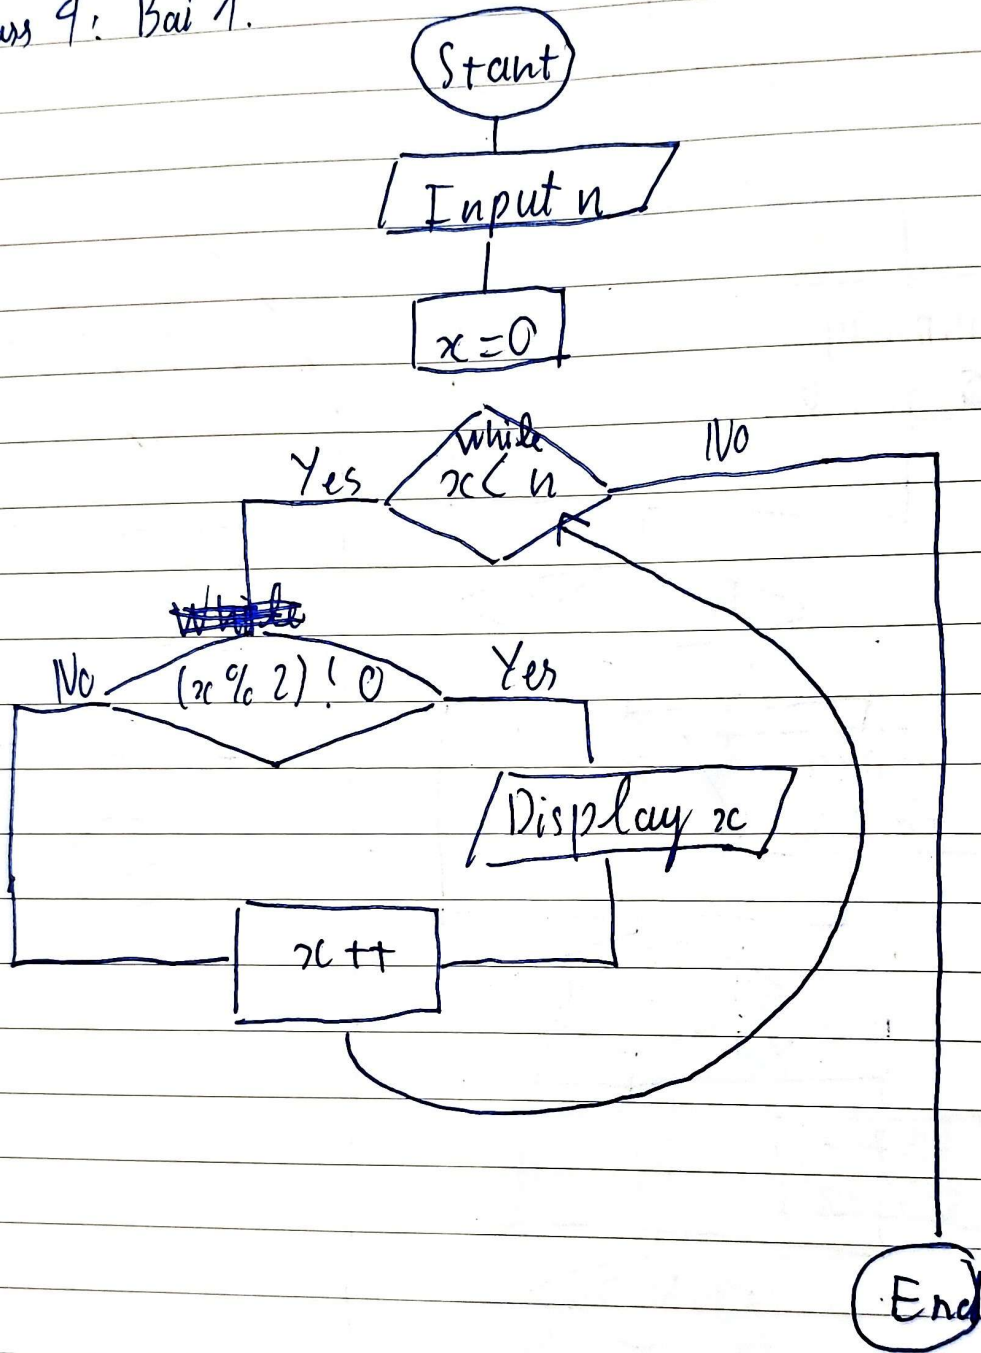 9: Bai 1.
Start
Input n
x = 0
while
x < n
Yes
No
(x % 2) ! 0
No
Yes
Display x
x ++
End